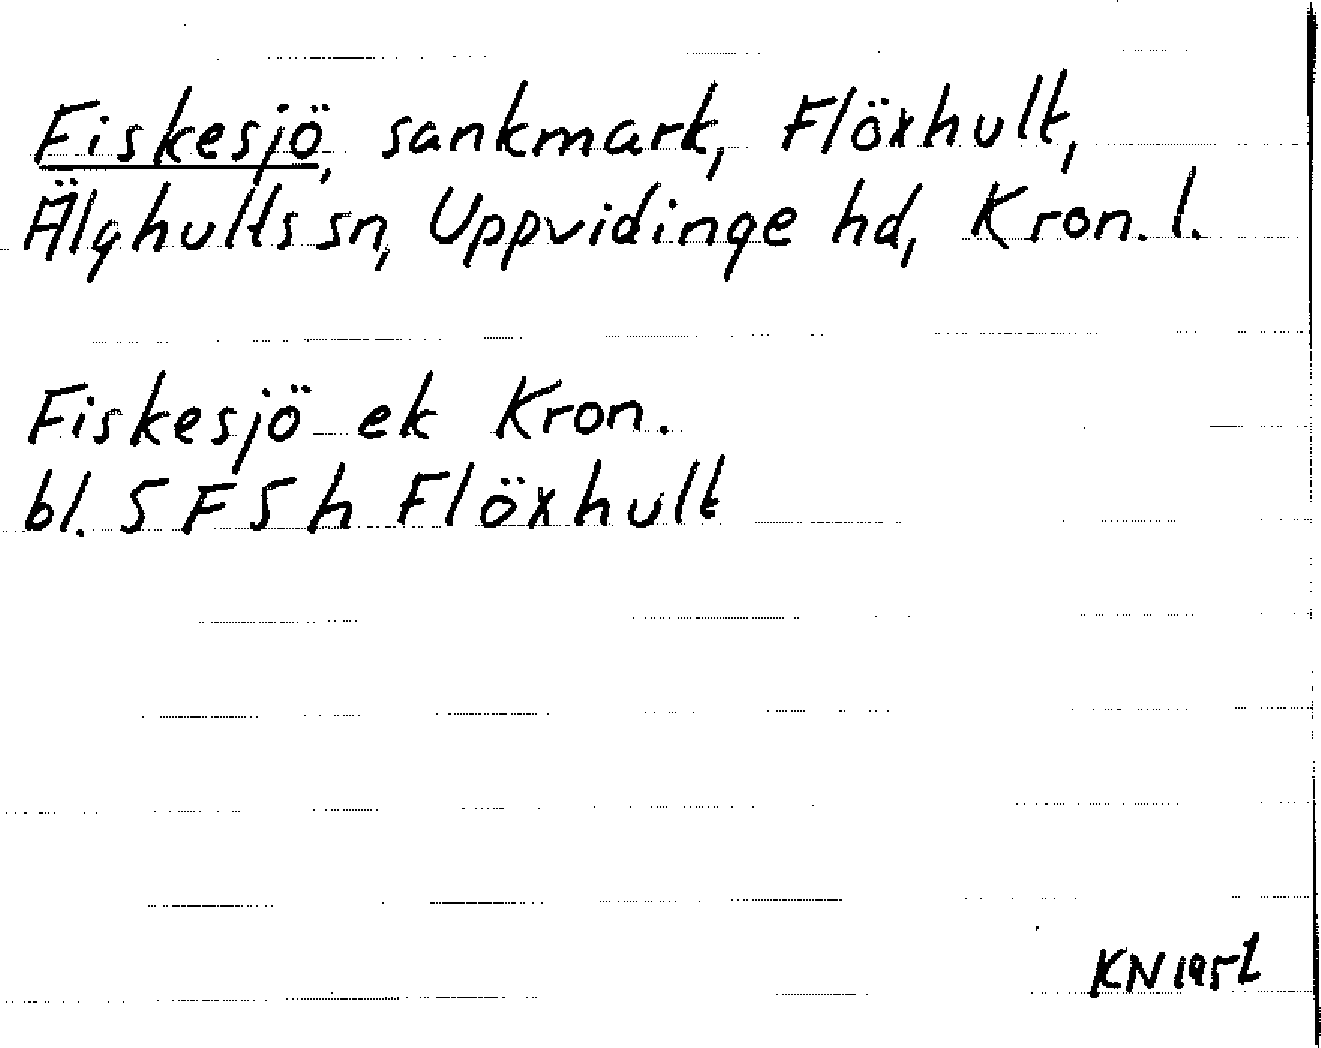 Fiskesjö, sankmark, Flöxhult,
Älghults sn, Uppvidinge hd, Kron. l.
Fiskesjö ek Kron.
bl. 5 F 5 h Flöxhult
KN 1952